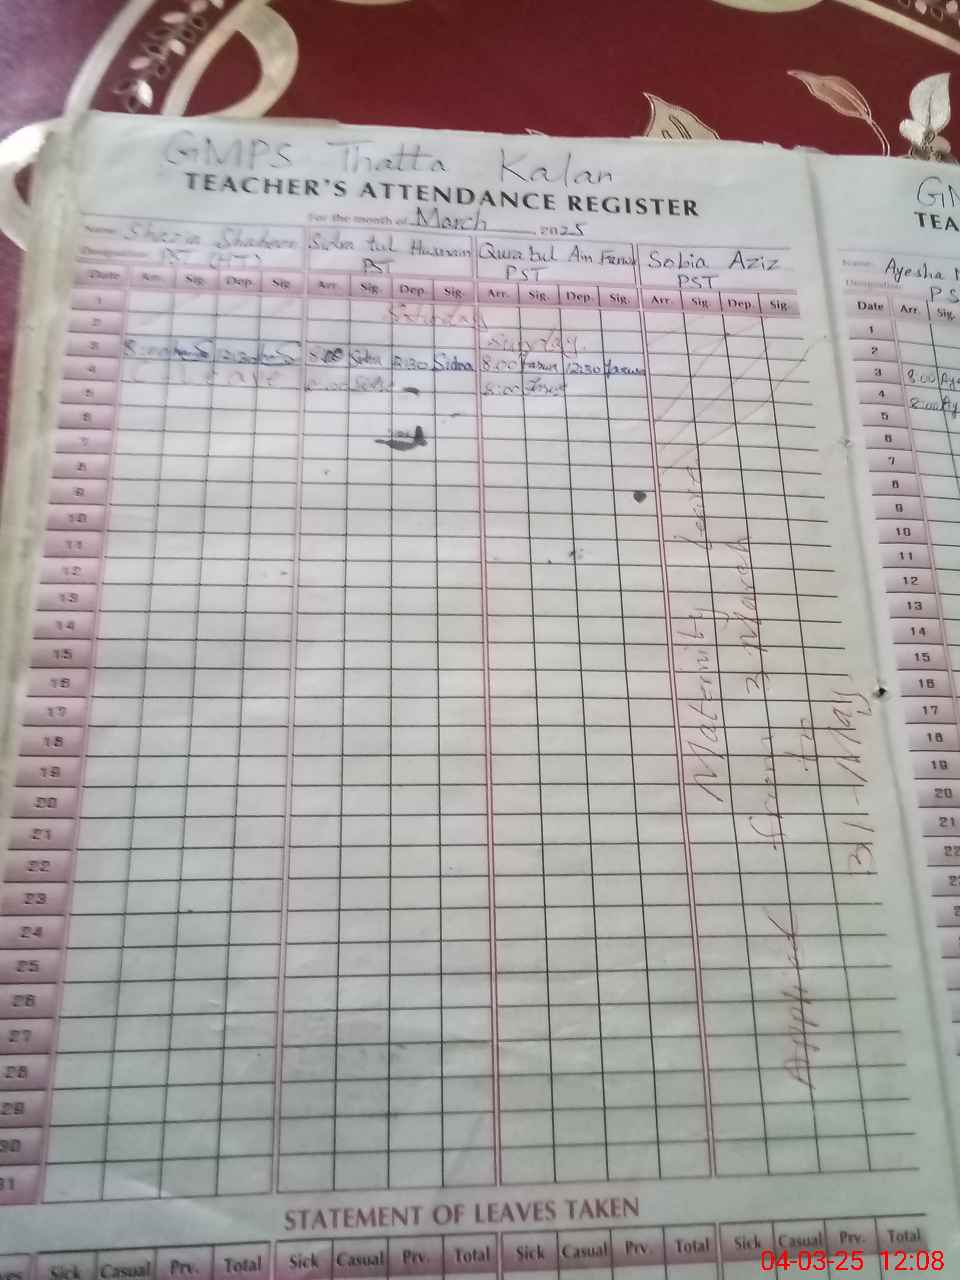 GMPS Thatta Kalan
TEACHER'S ATTENDANCE REGISTER
For the month of March 2025
Name Shazia Shaheen Sidra tul Husnain Qurat ul Ain Sobia Aziz
Designation PST (HT) PST PST PST
Date Arr. Sig. Dep. Sig. Arr. Sig. Dep. Sig. Arr. Sig. Dep. Sig. Arr. Sig. Dep. Sig.
1
2 Sunday
3 8:00 12:30 8:00 Sidra 12:30 Sidra 8:00 12:30
4 C leave 8:00
5
6
7
8
9
10
11
12
13
14
15
16
17
18
19
20
21
22
23
24
25
26
27
28
29
30
31
Applied Maternity leave
from 3 March
to
31-May
STATEMENT OF LEAVES TAKEN
Sick Casual Prv. Total Sick Casual Prv. Total Sick Casual Prv. Total Sick Casual Prv. Total
TEA
Name Ayesha
Designation PS
Date Arr. Sig.
1
2
3 8:00
4 8:00
5
6
7
8
9
10
11
12
13
14
15
16
17
18
19
20
21
22
04-03-25 12:08